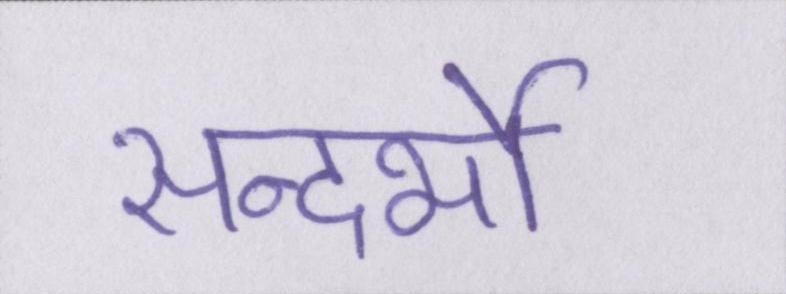 सन्दर्भो